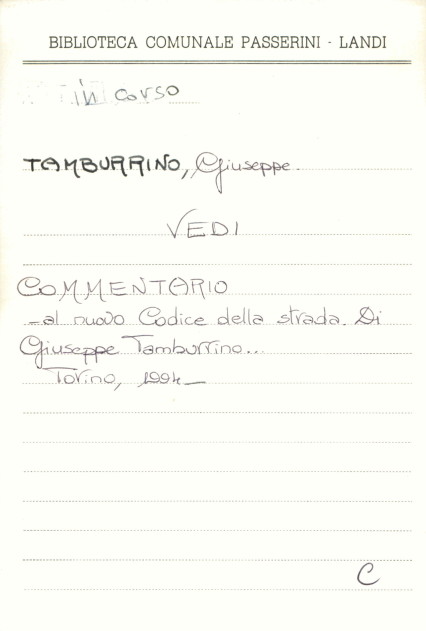 BIBLIOTECA COMUNALE PASSERINI - LANDI
in corso
TAMBURRINO, Giuseppe.
VEDI
COMMENTARIO
-al nuovo Codice della strada. Di
Giuseppe Tamburrino...
Torino, 1994_
C